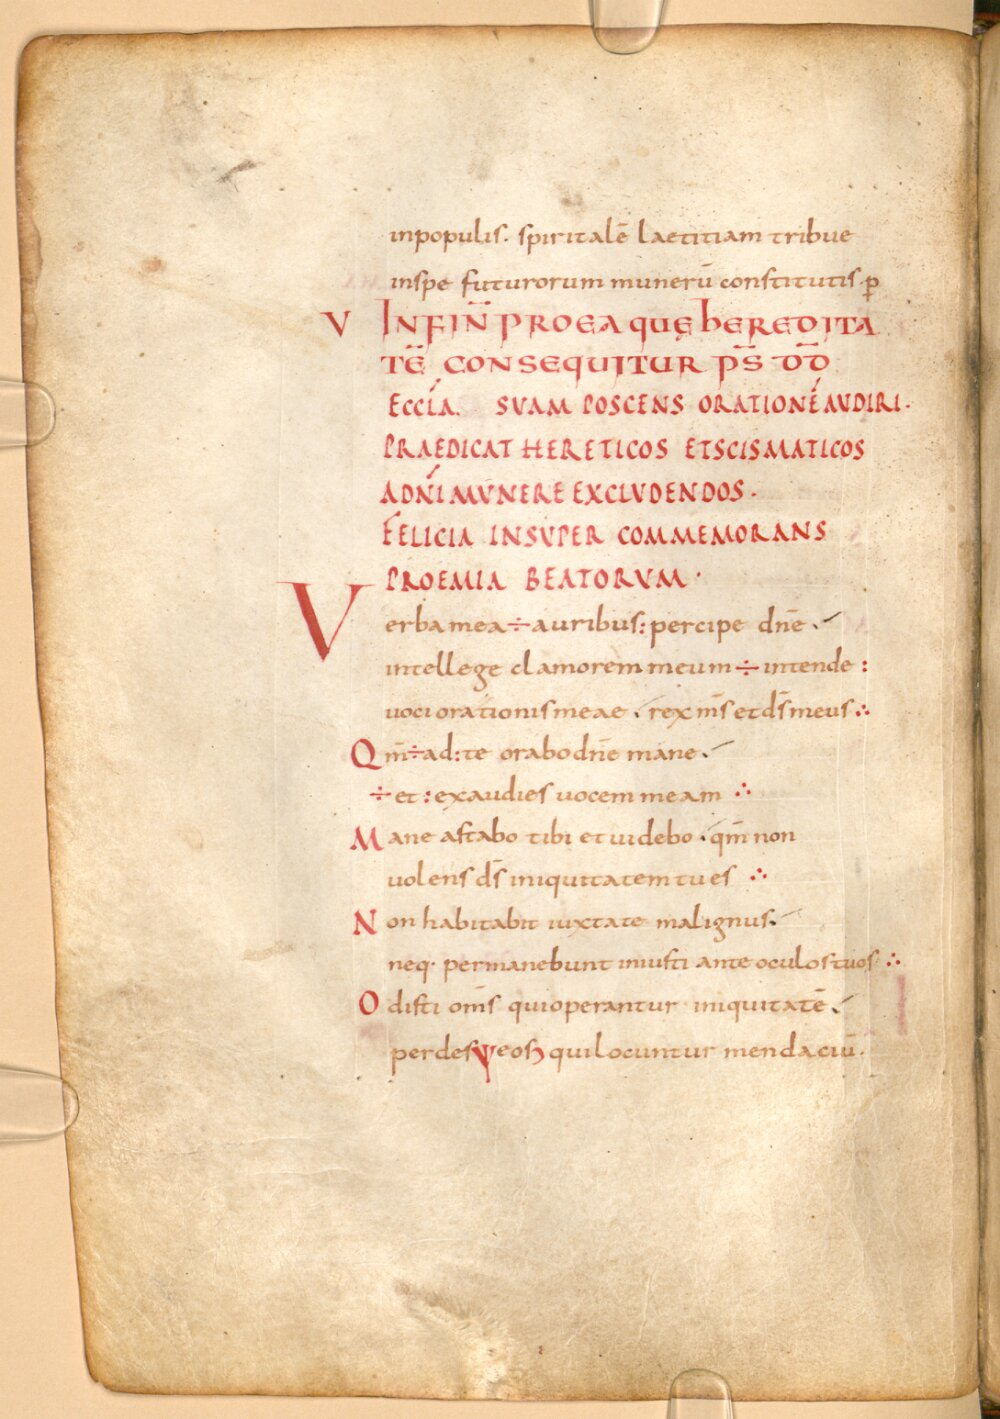 inpopulis. spiritalē laetitiam tribue
inspe futurorum munerū constitutis. ꝑ
V INFIN̄ PRO EA quę hEREDITA
TĒ CONSEQUITUR P̄S D̄D
ECCĹA. SVAM POSCENS ORATIONĒ AVDIRI.
PRAEDICAT HERETICOS ETSCISMATICOS
ADŃI MVNERE EXCLVDENDOS.
FELICIA INSVPER COMMEMORANS
PROEMIA BEATORVM.
Verba mea ÷ auribus: percipe dn̄e ./
intellege clamorem meum ÷ intende :
uoci orationis meae ./ rex m̄s et d̄s meus ∴
Qm̄ ÷ ad: te orabo dn̄e mane ./
÷ et : exaudies uocem meam ∴
Mane astabo tibi et uidebo ./ qm̄ non
uolens d̄s iniquitatem tu es ∴
Non habitabit iuxta te malignus ./
neq· permanebunt iniusti ante oculos tuos ∴
Odisti om̄s qui operantur iniquitatē ./
perdes ψ eos qui locuntur mendaciū.